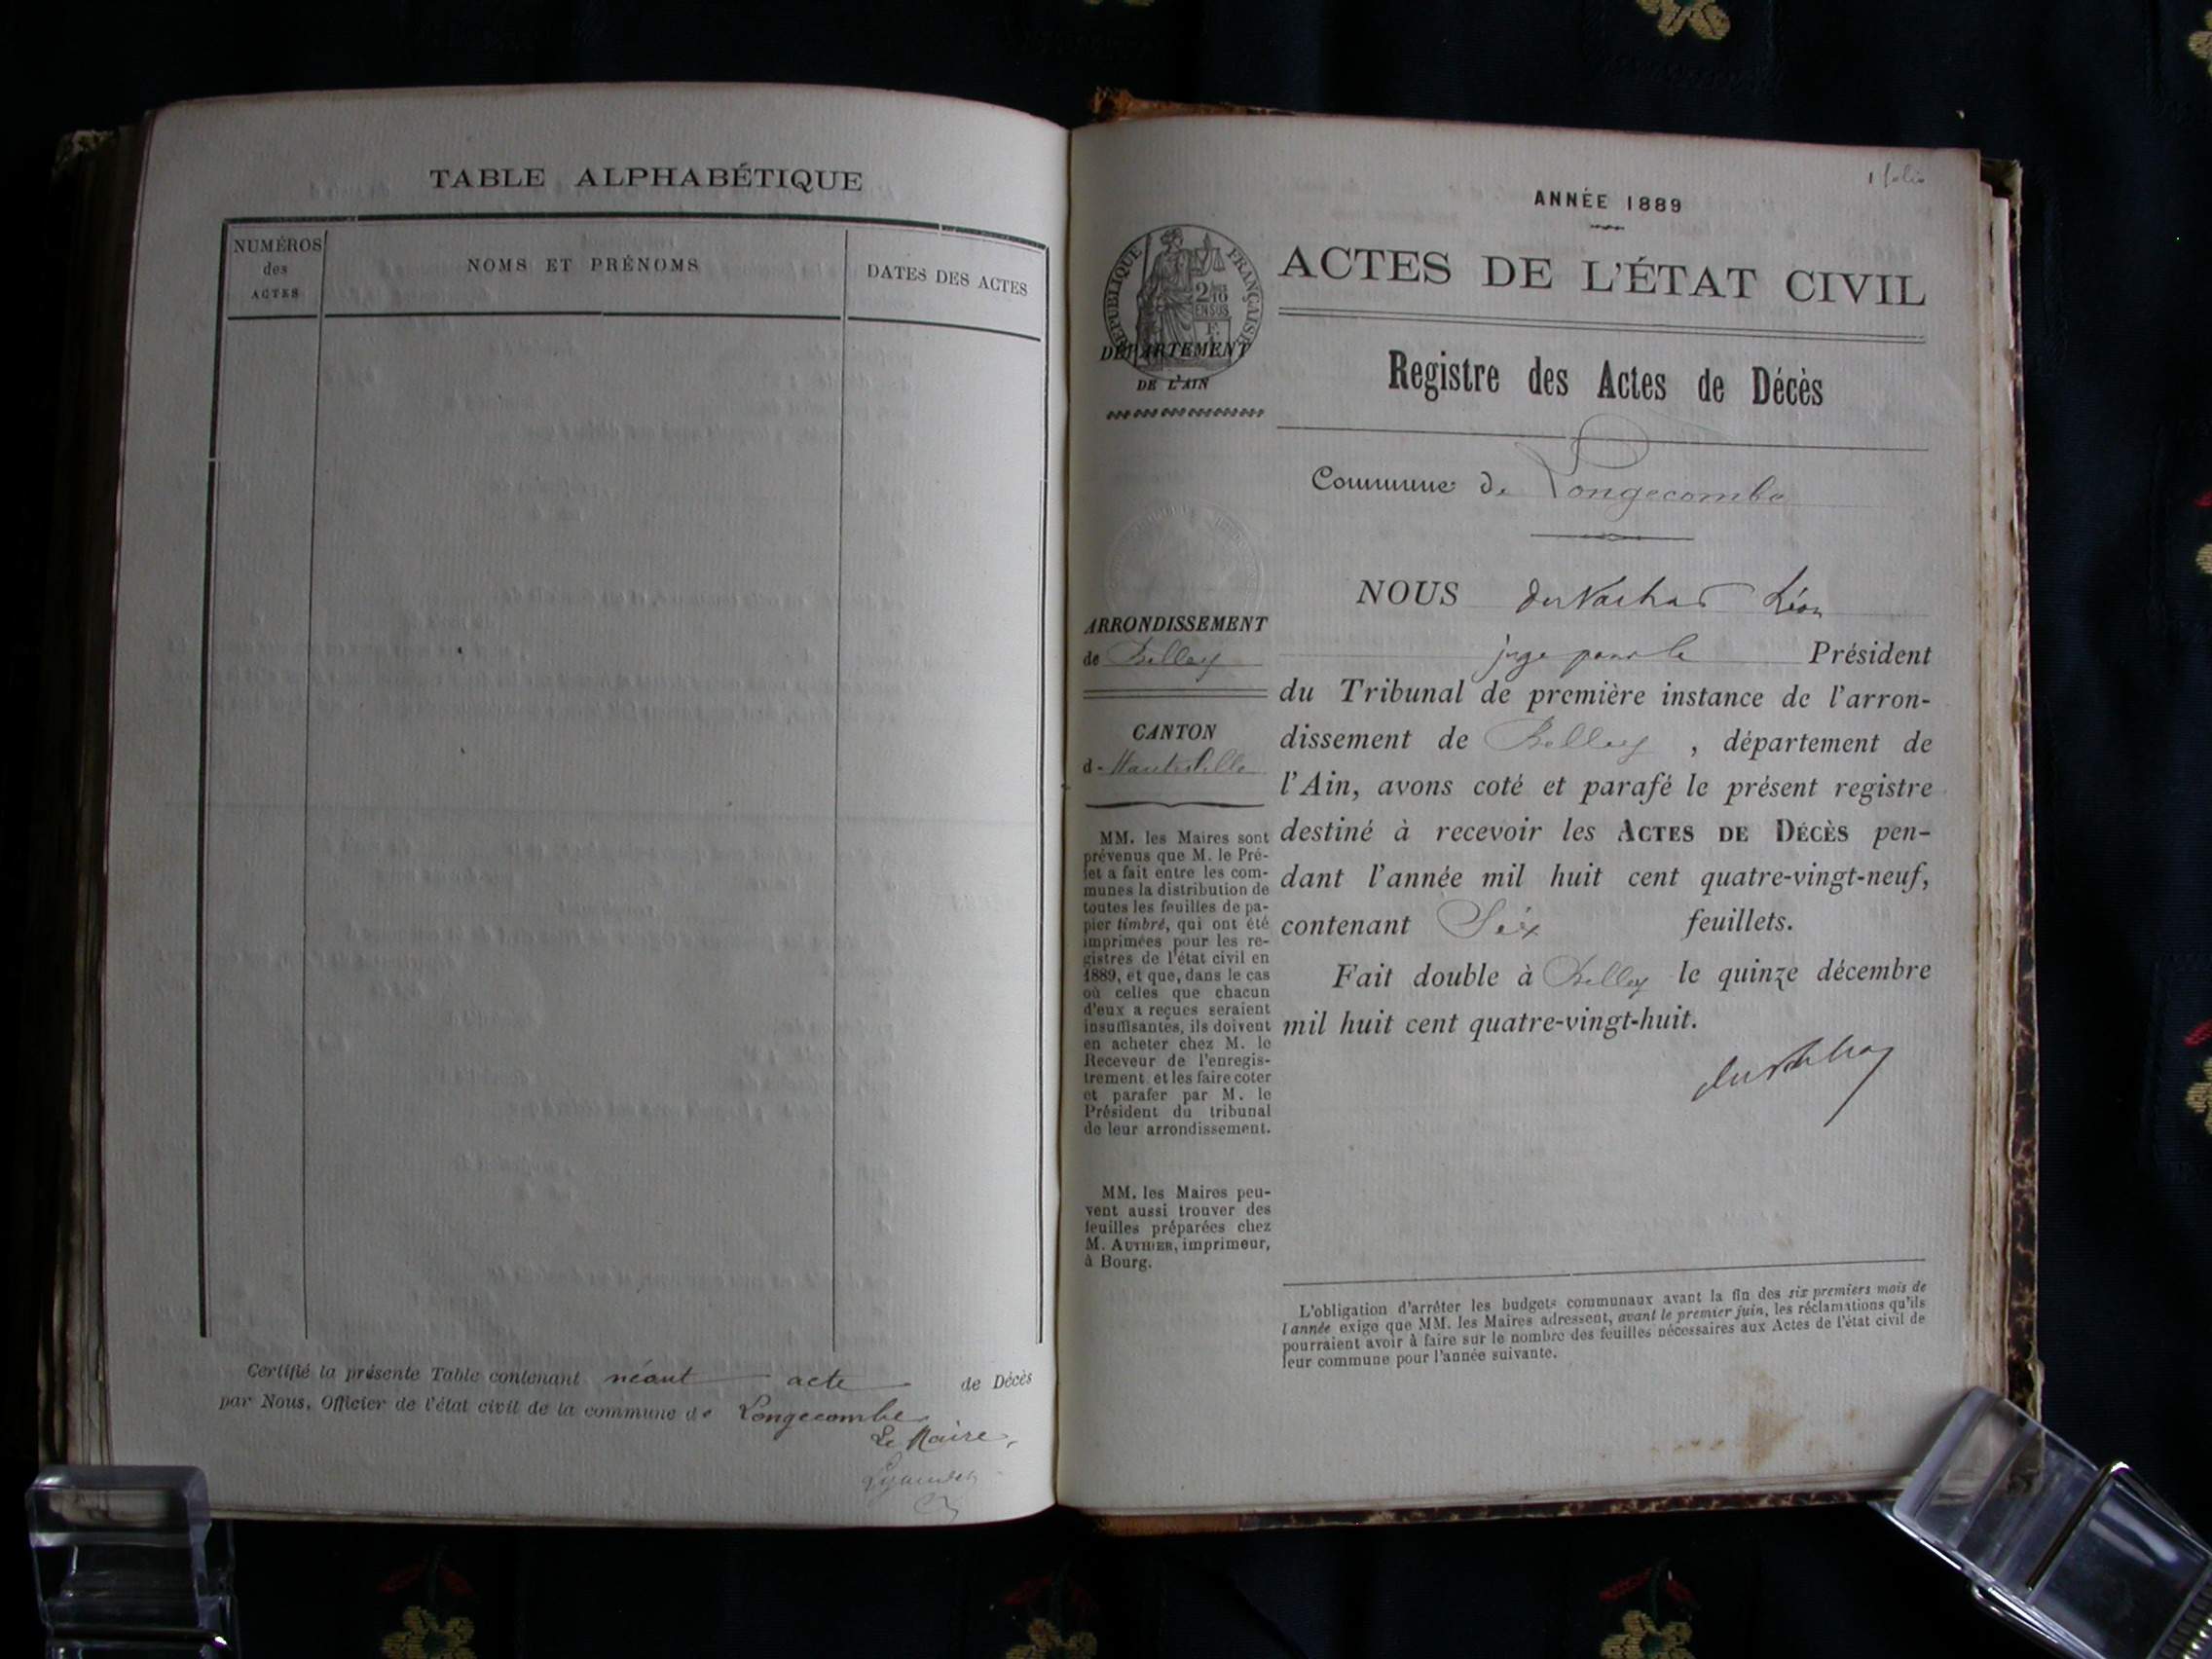 TABLE ALPHABÉTIQUE
NUMÉROS
des
ACTES
NOMS ET PRÉNOMS
DATES DES ACTES
Certifié la présente Table contenant néant acte de Décès
par Nous, Officier de l'état civil de la commune de Longecombe
Le Maire,
1 folio
ANNÉE 1889
RÉPUBLIQUE FRANÇAISE
DÉPARTEMENT
DE L'AIN
ACTES DE L'ÉTAT CIVIL
Registre des Actes de Décès
Commune de Longecombe
ARRONDISSEMENT
de Belley
CANTON
d- Hauteville
MM. les Maires sont
prévenus que M. le Pré-
fet a fait entre les com-
munes la distribution de
toutes les feuilles de pa-
pier timbré, qui ont été
imprimées pour les re-
gistres de l'état civil en
1889, et que, dans le cas
où celles que chacun
d'eux a reçues seraient
insuffisantes, ils doivent
en acheter chez M. le
Receveur de l'enregis-
trement et les faire coter
et parafer par M. le
Président du tribunal
de leur arrondissement.
MM. les Maires peu-
vent aussi trouver des
feuilles préparées chez
M. AUTHIER, imprimeur,
à Bourg.
NOUS Léon
juge pour le Président
du Tribunal de première instance de l'arron-
dissement de Belley, département de
l'Ain, avons coté et parafé le présent registre
destiné à recevoir les ACTES DE DÉCÈS pen-
dant l'année mil huit cent quatre-vingt-neuf,
contenant Six feuillets.
Fait double à Belley le quinze décembre
mil huit cent quatre-vingt-huit.
L'obligation d'arrêter les budgets communaux avant la fin des six premiers mois de
l'année exige que MM. les Maires adressent, avant le premier juin, les réclamations qu'ils
pourraient avoir à faire sur le nombre des feuilles nécessaires aux Actes de l'état civil de
leur commune pour l'année suivante.